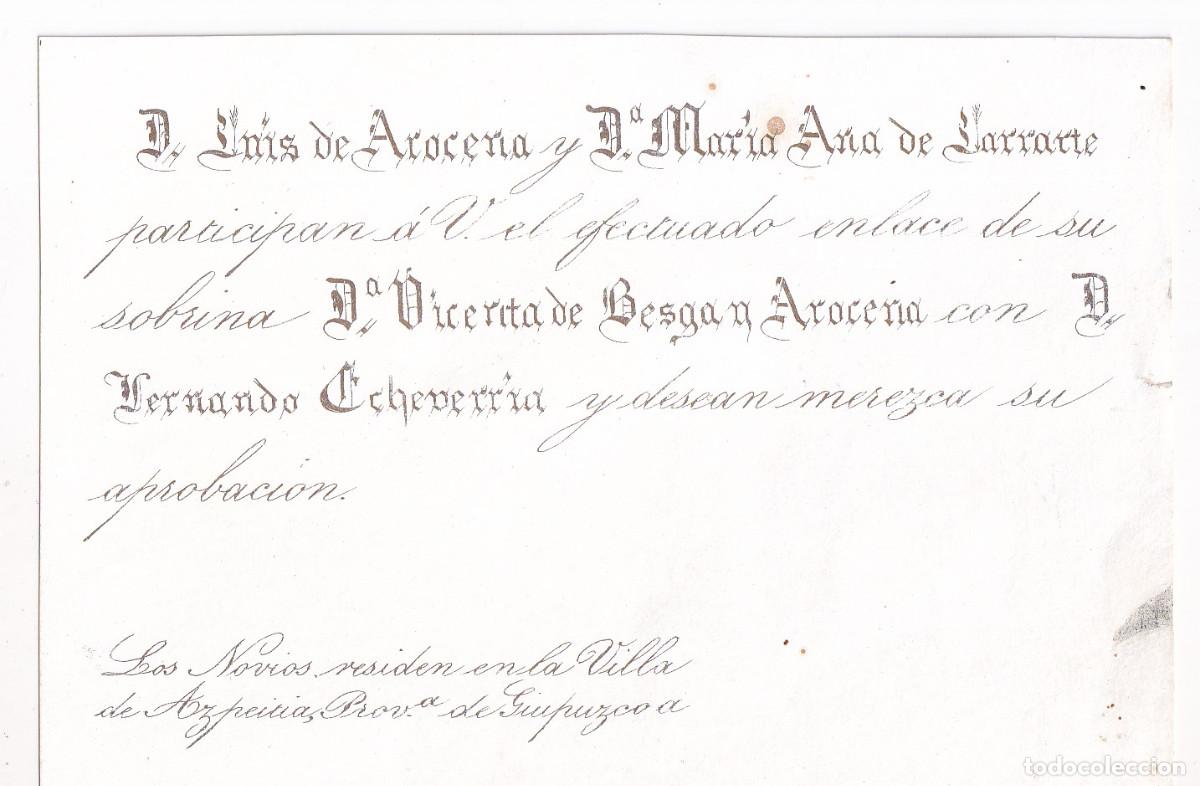 D. Luis de Arocena y D.ª María Ana de Larrarte
participan á V. el efectuado enlace de su
sobrina D.ª Vicenta de Besga y Arocena con D.
Fernando Echeverría y desean merezca su
aprobación.
Los Novios residen en la Villa
de Azpeitia, Prov.ª de Giupuzcoa
todocoleccion